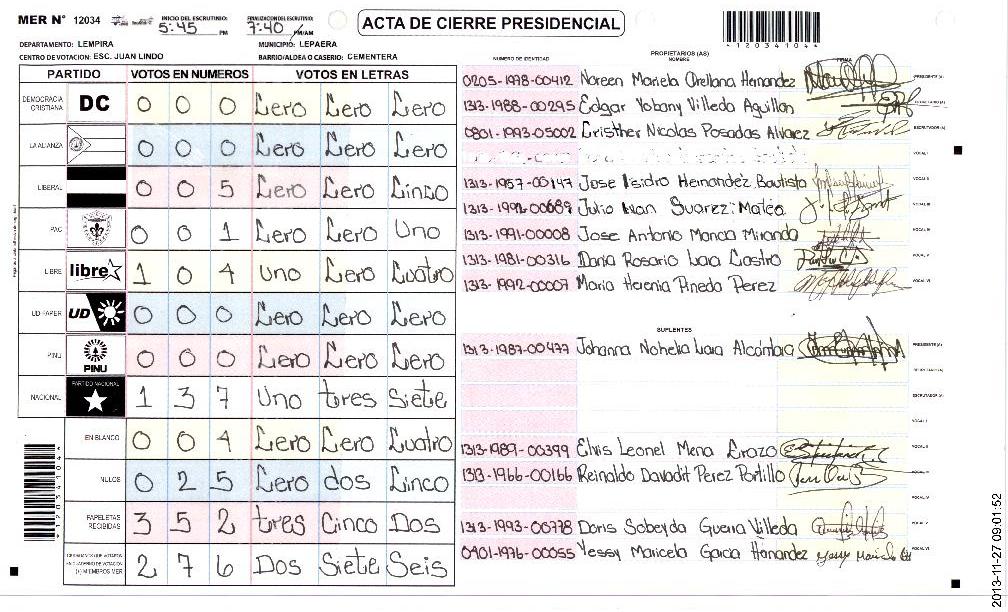 MER N° 12034
INICIO DEL ESCRUTINIO: 5:45 PM
FINALIZACION DEL ESCRUTINIO: 7:40 PM/AM
ACTA DE CIERRE PRESIDENCIAL
120341044
DEPARTAMENTO: LEMPIRA
MUNICIPIO: LEPAERA
CENTRO DE VOTACION: ESC. JUAN LINDO
BARRIO/ALDEA O CASERIO: CEMENTERA
PARTIDO VOTOS EN NUMEROS VOTOS EN LETRAS
DEMOCRACIA CRISTIANA DC 0 0 0 Cero Cero Cero
LA ALIANZA 0 0 0 Cero Cero Cero
LIBERAL 0 0 5 Cero Cero Cinco
PAC 0 0 1 Cero Cero Uno
LIBRE libre 1 0 4 Uno Cero Cuatro
UD-FAPER UD 0 0 0 Cero Cero Cero
PINU PINU 0 0 0 Cero Cero Cero
NACIONAL PARTIDO NACIONAL 1 3 7 Uno tres Siete
EN BLANCO 0 0 4 Cero Cero Cuatro
NULOS 0 2 5 Cero dos Cinco
PAPELETAS RECIBIDAS 3 5 2 tres Cinco Dos
CIUDADANOS QUE VOTARON EN CUADERNO DE VOTACION (+) MIEMBROS MER 2 7 6 Dos Siete Seis
120341044
NUMERO DE IDENTIDAD
PROPIETARIOS (AS)
NOMBRE
FIRMA
0205-1978-00412 Noreen Mariela Orellana Hernandez PRESIDENTE (A)
1313-1988-00295 Edgar Yobany Villeda Aguilar SECRETARIO (A)
0801-1993-05002 Cristher Nicolas Posadas Alvarez ESCRUTADOR (A)
VOCAL I
1313-1957-00147 Jose Isidro Hernandez Bautista VOCAL II
1313-1992-00689 Julio Ivan Suarez Matea VOCAL III
1313-1991-00008 Jose Antonio Monca Miranda VOCAL IV
1313-1981-00316 Dania Rosario Lara Castro VOCAL V
1313-1992-00007 Maria Herenia Pineda Perez VOCAL VI
SUPLENTES
1313-1987-00477 Johanna Nohelia Lara Alcántara PRESIDENTE (A)
SECRETARIO (A)
ESCRUTADOR (A)
VOCAL I
1313-1989-00399 Elvis Leonel Mena Erazo VOCAL II
1313-1966-00166 Reinaldo Davadit Perez Portillo VOCAL III
VOCAL IV
1313-1993-00778 Doris Sobeyda Guerra Villeda VOCAL V
0401-1976-00055 Yessy Maricela Garcia Hernandez VOCAL VI
2013-11-27 09:01:52